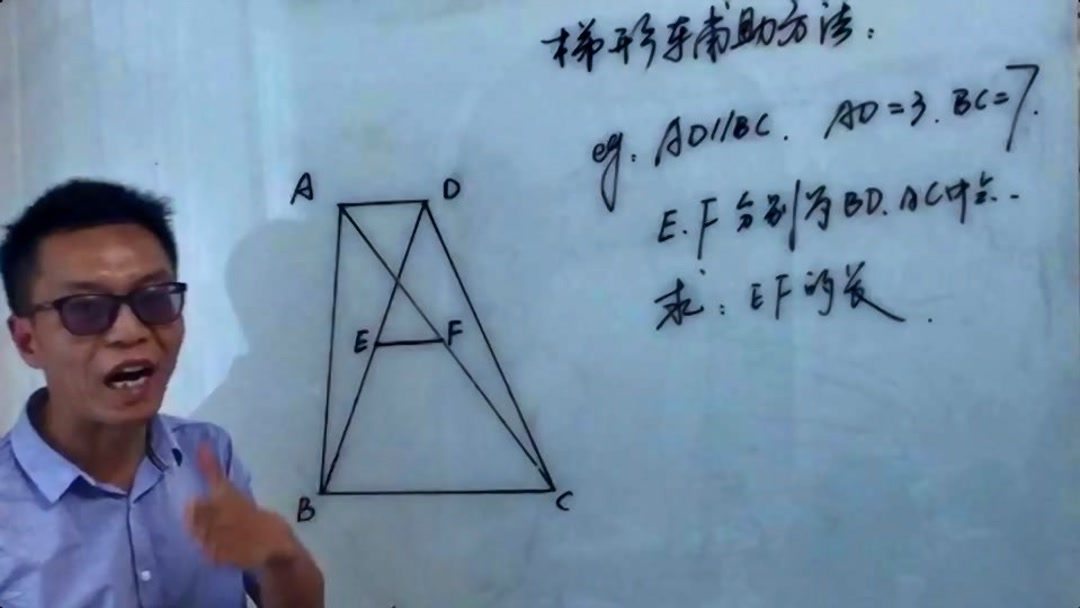 梯形辅助方法：
eg. AD//BC. AD=3. BC=7.
E.F分别为BD.AC中点..
求：EF的长.
A D
E F
B C